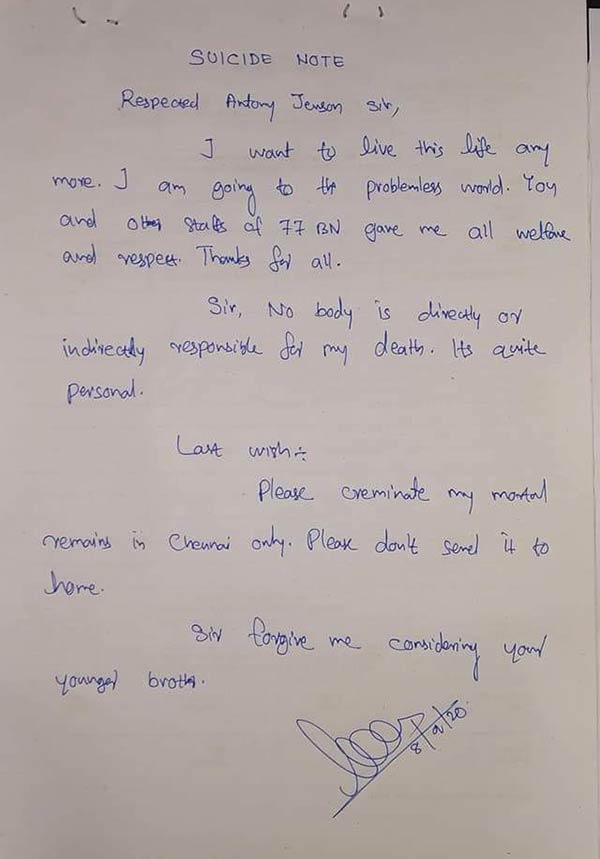 SUICIDE NOTE
Respected Antony Jenson Sir,
I want to live this life any
more. I am going to the problemless world. You
and other staffs of 77 BN gave me all welfare
and respect. Thanks for all.
Sir, No body is directly or
indirectly responsible for my death. Its quite
personal.
Last wish:-
Please creminate my mortal
remains in Chennai only. Please don't send it to
home.
Sir forgive me considering your
younger brother.